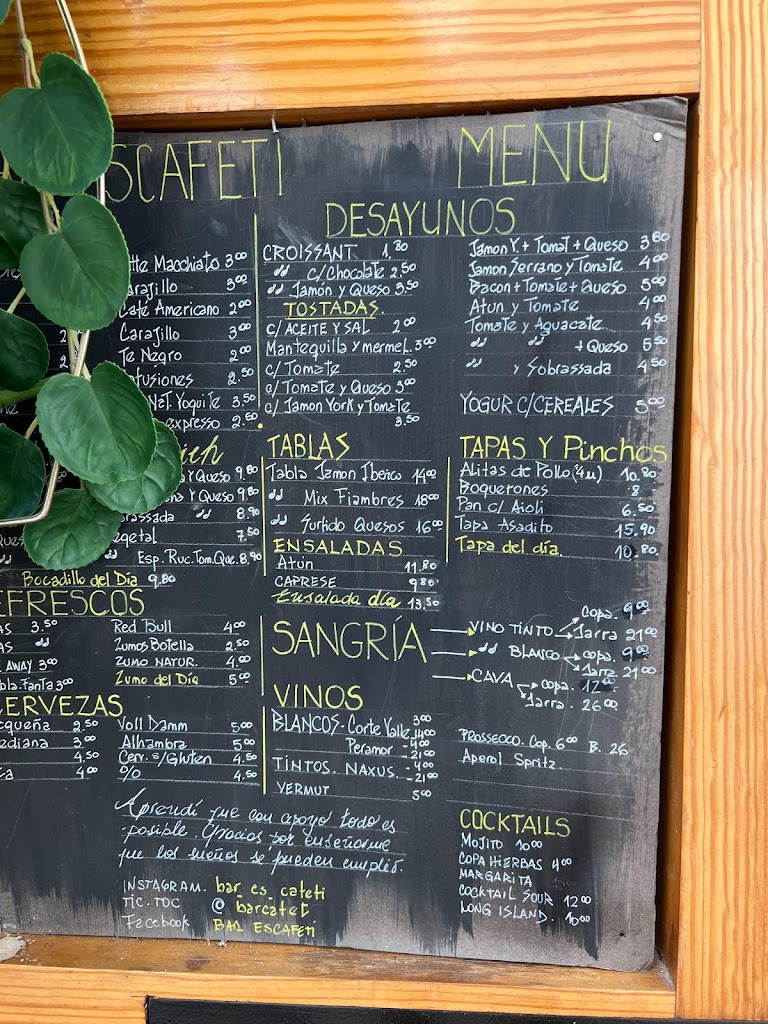 SCAFETI MENU
tte Macchiato 300
arajillo 300
Café Americano 2.00
Carajillo 3.00
Te Negro 2.00
fusiones 2.50
Nat. Yoquite 3.50
expresso 2.50
DESAYUNOS
CROISSANT 1,80
" c/Chocolate 2,50
" Jamón y Queso 3.50
TOSTADAS.
c/ ACEITE Y SAL 2.00
Mantequilla y mermel. 3.00
c/ Tomate 2.50
c/ Tomate y Queso 3.00
c/ Jamon York y Tomate 3.50
Jamon Y. + Tomat + Queso 3.80
Jamon Serrano y Tomate 4.00
Bacon + Tomate + Queso 5.00
Atun y Tomate 4.00
Tomate y Aguacate 4.50
" " + Queso 5.50
" y Sobrassada 4.50
YOGUR C/CEREALES 5.00
ich
y Queso 9.80
y Queso 9.80
brassada " 8.90
egetal 7.50
Esp. Ruc. Tom. Que. 8.90
Bocadillo del Día 9.80
TABLAS
Tabla Jamon Iberico 14.00
" Mix Fiambres 18.00
" Surtido Quesos 16.00
ENSALADAS
Atún 11.80
CAPRESE 9.80
Ensalada día 13.50
TAPAS Y Pinchos
Alitas de Pollo (4u) 10.80
Boquerones 8
Pan c/ Aioli 6.50
Tapa Asadito 15.90
Tapa del día. 10.80
EFRESCOS
AS 3.50
AS "
AWAY 3.00
bla. Fanta 3.00
Red Bull 4.00
Zumos Botella 2.50
ZUMO NATUR. 4.00
Zumo del Día 5.00
SANGRÍA
VINO TINTO Copa. 9.00
Jarra 21.00
" BLANCO copa. 9.00
Jarra. 21.00
CAVA copa. 12.00
Jarra. 26.00
CERVEZAS
equeña 2.50
ediana 3.00
4.50
4.00
Voll Damm 5.00
Alhambra 5.00
Cerv. s/Gluten 4.50
0/0 4.50
VINOS
BLANCOS - Corte Valle 3.00
14.00
Peramor - 4.00
- 21.00
TINTOS. NAXUS. - 4.00
- 21.00
VERMUT 5.00
PROSSECCO. Cop. 6.00 B. 26
Aperol Spritz.
Aprendí que con apoyo todo es
posible. Gracias por enseñarme
que los sueños se pueden cumplir.
COCKTAILS
MOJITO 10.00
COPA HIERBAS 4.00
MARGARITA
COCKTAIL SOUR 12.00
LONG ISLAND. 10.00
INSTAGRAM. bar_es_cafeti
TIC.TOC @ barcafeti
Facebook BAR ESCAFETI